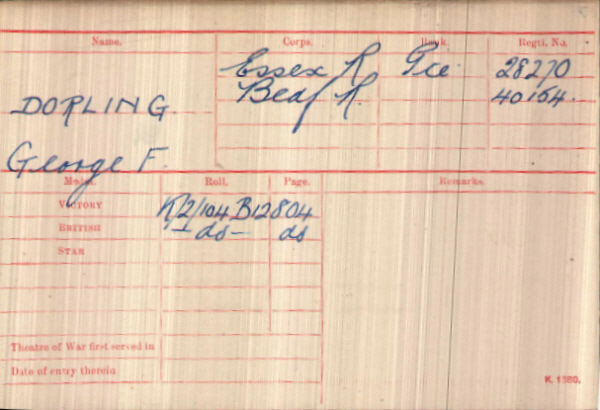 Name. Corps. Rank. Regtl. No.
Essex R Pte 28270
DORLING. Bedf R. 40154.
George F.
Medal. Roll. Page. Remarks.
VICTORY K/2/104 B12 804
BRITISH -do- do
STAR
Theatre of War first served in
Date of entry therein
K. 1380.